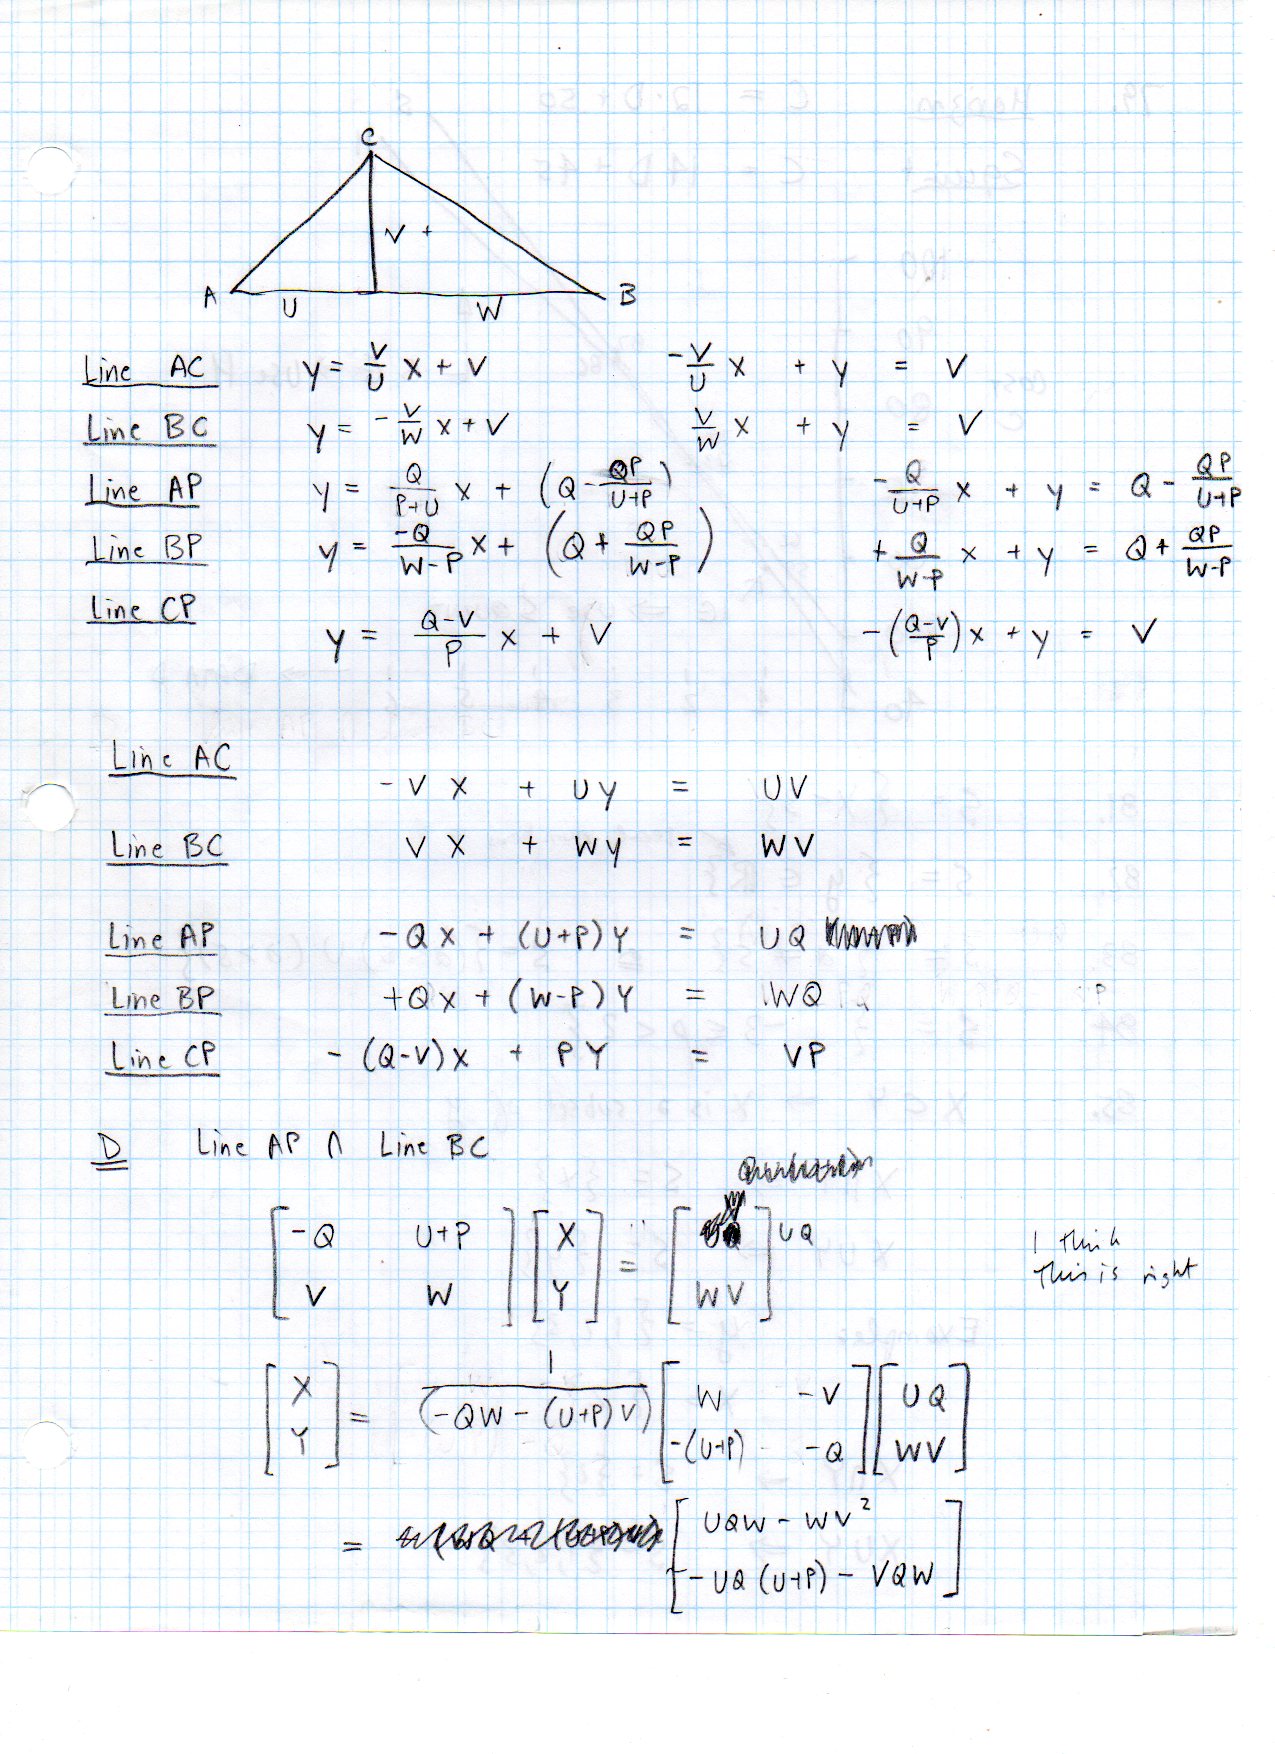 C
V
A U W B
Line AC y = V/U x + V -V/U x + y = V
Line BC y = -V/W x + V V/W x + y = V
Line AP y = Q/(P+U) x + (Q - QP/(U+P)) -Q/(U+P) x + y = Q - QP/(U+P)
Line BP y = -Q/(W-P) x + (Q + QP/(W-P)) +Q/(W-P) x + y = Q + QP/(W-P)
Line CP y = (Q-V)/P x + V -((Q-V)/P) x + y = V
Line AC -V x + U y = UV
Line BC V x + W y = WV
Line AP -Q x + (U+P) Y = UQ
Line BP +Q x + (W-P) Y = WQ
Line CP -(Q-V) x + P Y = VP
D Line AP ∩ Line BC
[-Q U+P] [X] = [ ] UQ
[V W] [Y] [WV]
I think
This is right
[X] = 1/(-QW - (U+P)V) [W -V] [UQ]
[Y] [-(U+P) -Q] [WV]
= [UQW - WV²]
[-UQ(U+P) - VQW]